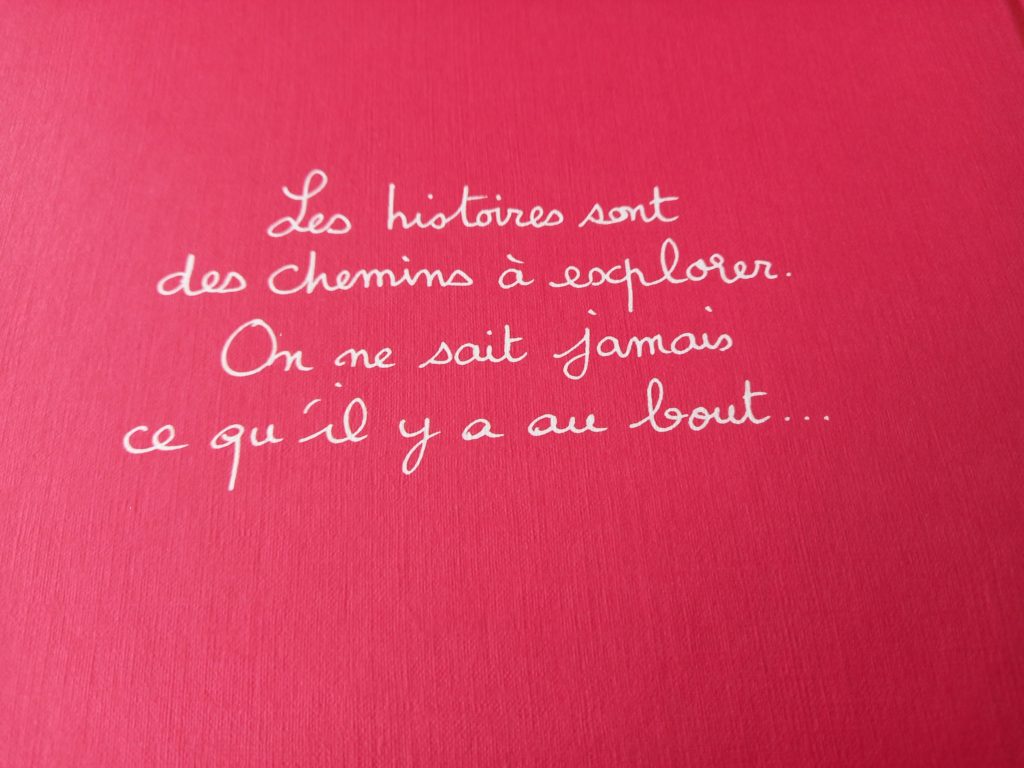 Les histoires sont
des chemins à explorer.
On ne sait jamais
ce qu'il y a au bout...